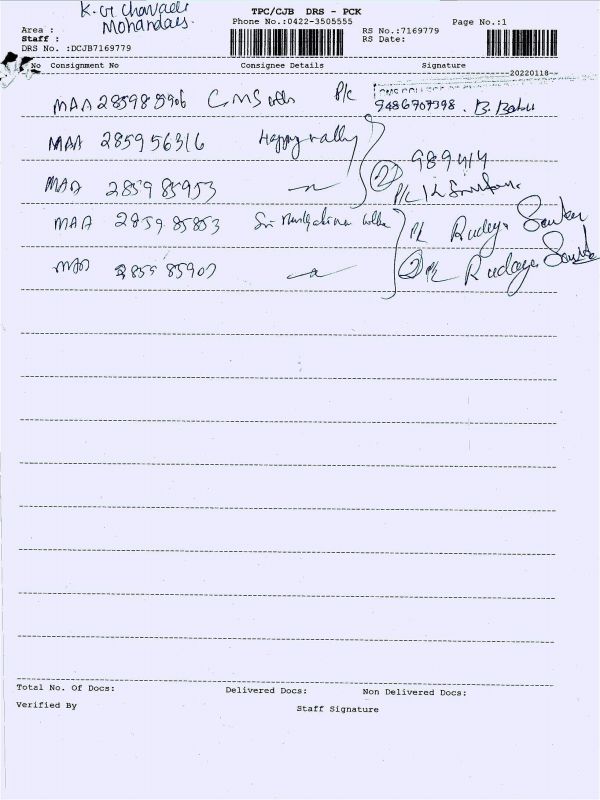 K. G Chavadi
Mohandas.
TPC/CJB DRS - PCK
Phone No.:0422-3505555
Page No.:1
Area :
Staff :
DRS No. :DCJB7169779
RS No.:7169779
RS Date:
No Consignment No Consignee Details Signature
20220118
MAA 285985906 CMS P/c
9486707398. B. Babu
MAA 285956316 Happy valley
989414
MAA 285985953 (2) P/c
MAA 285985853 Sri P/c
MAA 285985907 (2) P/c
Total No. Of Docs: Delivered Docs: Non Delivered Docs:
Verified By Staff Signature